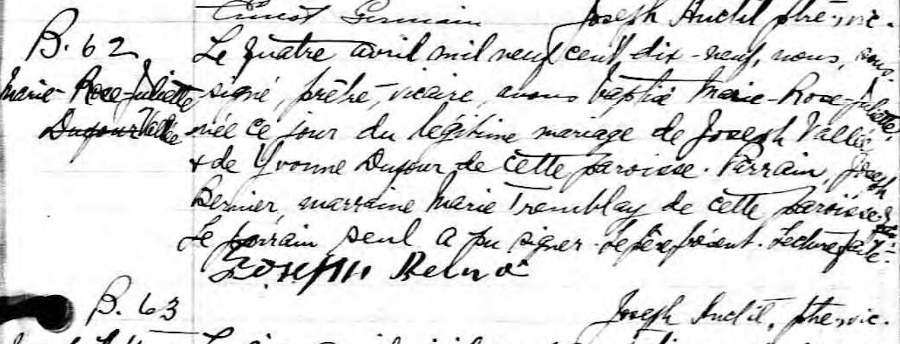 Ernest Germain Joseph Audit, ptre-vic.
B. 62
Marie-Rose-Juliette
Dufour Vallée
Le quatre avril mil neuf cent dix-neuf, nous, sous-
signé, prêtre, vicaire, avons baptisé Marie-Rose-Juliette
née ce jour du légitime mariage de Joseph Vallée
& de Yvonne Dufour de cette paroisse. Parrain, Joseph
Bernier, marraine Marie Tremblay de cette paroisse
Le parrain seul a pu signer. Le père présent. Lecture faite.
Joseph
Joseph Audit, ptre-vic.
B. 63